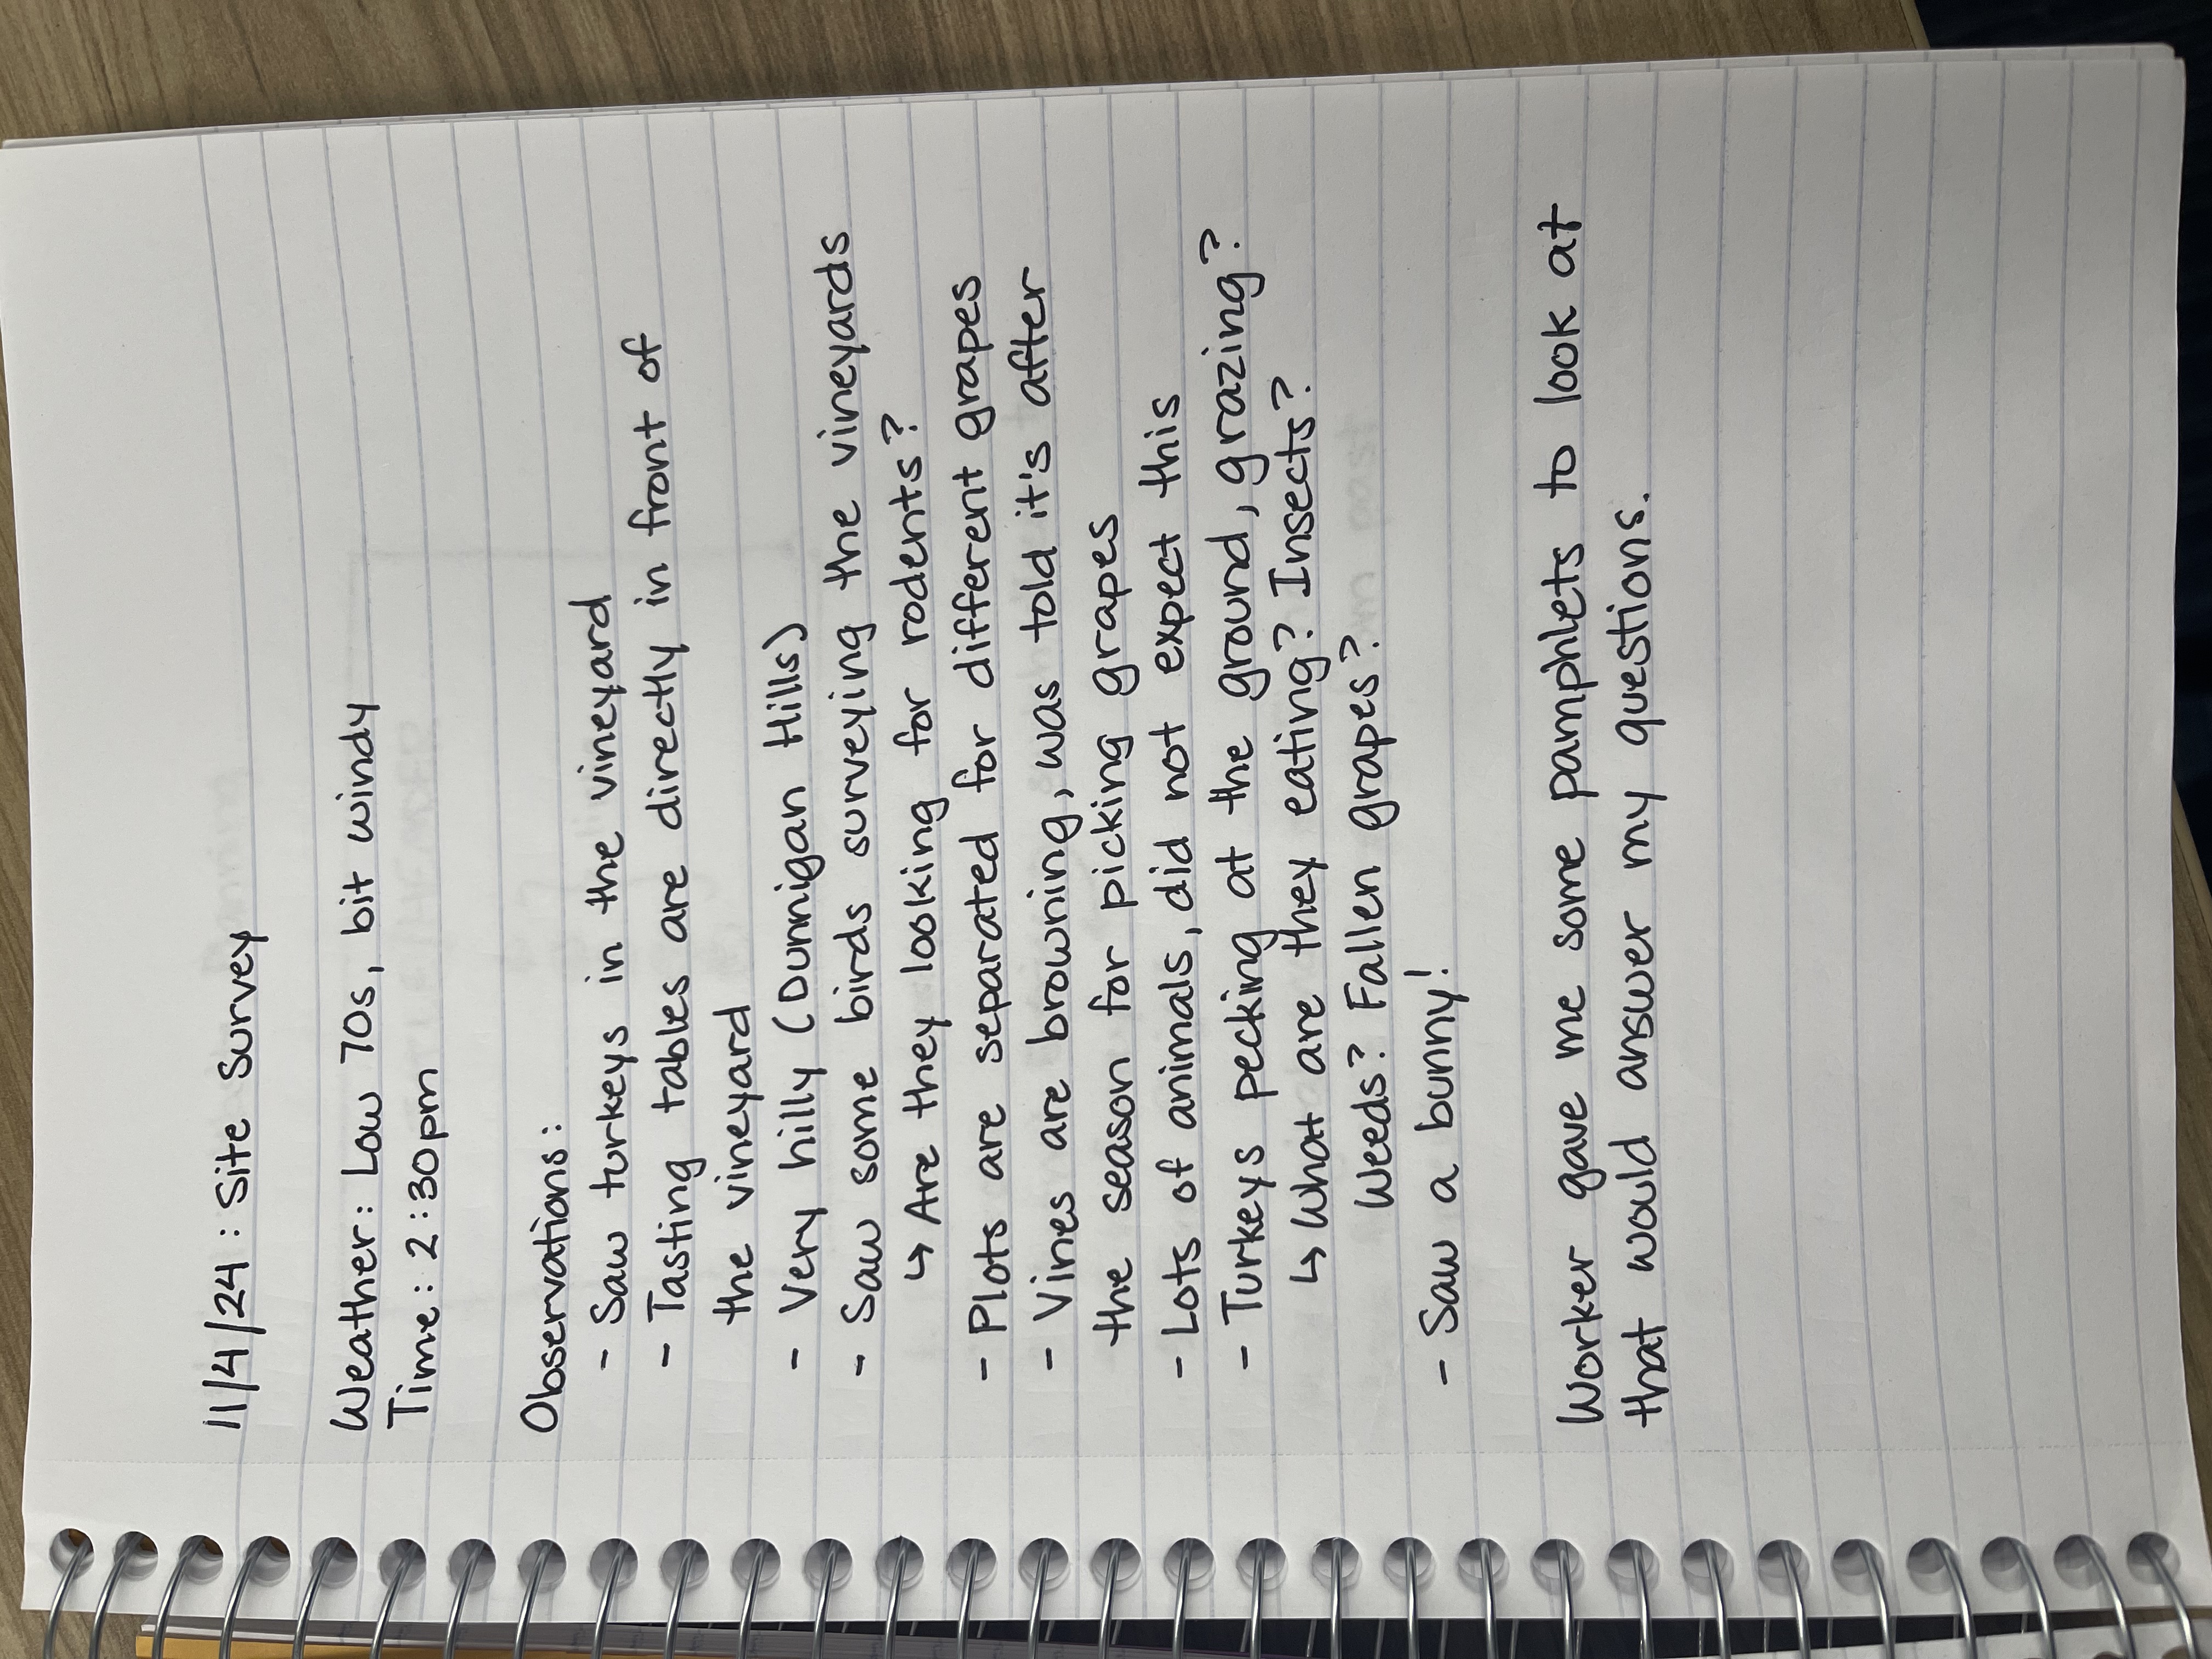 11/4/24 : Site Survey
Weather: Low 70s, bit windy
Time: 2:30pm
Observations:
- Saw turkeys in the vineyard
- Tasting tables are directly in front of
the vineyard
- Very hilly (Dunnigan Hills)
- Saw some birds surveying the vineyards
↳ Are they looking for rodents?
- Plots are separated for different grapes
- Vines are browning, was told it's after
the season for picking grapes
- Lots of animals, did not expect this
- Turkeys pecking at the ground, grazing?
↳ What are they eating? Insects?
Weeds? Fallen grapes?
- Saw a bunny!
Worker gave me some pamphlets to look at
that would answer my questions.